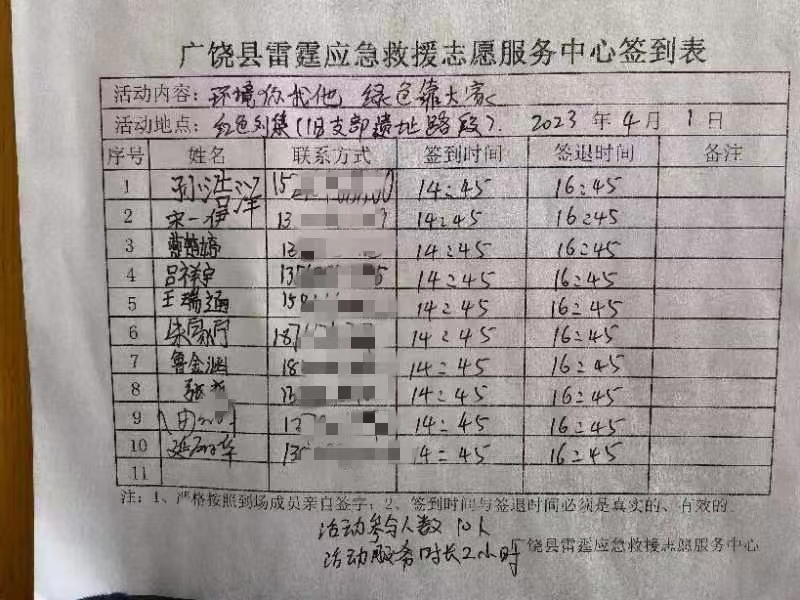 广饶县雷霆应急救援志愿服务中心签到表
活动内容: 环境你我他 绿色靠大家
活动地点: 红色刘集(旧支部遗址路段). 2023 年 4 月 1 日
序号 姓名 联系方式 签到时间 签退时间 备注
1 15 14:45 16:45
2 宋一伊 13 14:45 16:45
3 13 14:45 16:45
4 吕祥宇 135 14:45 16:45
5 王瑞通 158 14:45 16:45
6 187 14:45 16:45
7 鲁金涵 18 14:45 16:45
8 张 15 14:45 16:45
9 14:45 16:45
10 延 华 13 14:45 16:45
11
注: 1、严格按照到场成员亲自签字; 2、签到时间与签退时间必须是真实的、有效的.
活动参与人数 10人
广饶县雷霆应急救援志愿服务中心
活动服务时长2小时